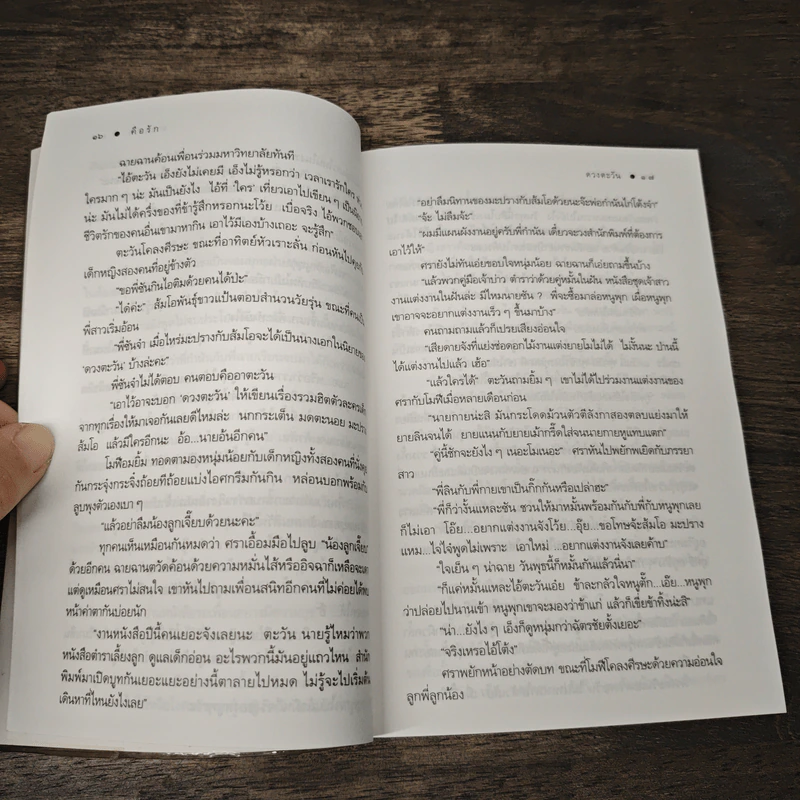 ๑๖ ● คือรัก
ฉายฉานค้อนเพื่อนร่วมมหาวิทยาลัยทันที
"ไอ้ตะวัน เอ็งยังไม่เคยมี เอ็งไม่รู้หรอกว่า เวลาเรารักใคร
ใครมาก ๆ น่ะ มันเป็นยังไง ไอ้ที่ 'ใคร' เที่ยวเอาไปเขียน ๆ เป็น
น่ะ มันไม่ได้ครึ่งของที่ข้ารู้สึกหรอกนะโว้ย เบื่อจริง ไอ้พวกชอบ
ชีวิตรักของคนอื่นเขามาหากิน เอาไว้มีเองบ้างเถอะ จะรู้สึก"
ตะวันโคลงศีรษะ ขณะที่อาทิตย์หัวเราะลั่น ก่อนหันไป
เด็กหญิงสองคนที่อยู่ข้างตัว
"ขอพี่ซันกินไอติมด้วยคนได้ปะ"
"ได๋ค่ะ" ส้มโอพันธุ์ขาวแป้นตอบสำนวนวัยรุ่น ขณะที่
พี่สาวเริ่มอ้อน
"พี่ซันจ๋า เมื่อไหร่มะปรางกับส้มโอจะได้เป็นนางเอกในนิยาย
'ดวงตะวัน' บ้างล่ะคะ"
พี่ซันจ๋าไม่ได้ตอบ คนตอบคืออาตะวัน
"เอาไว้อาจะบอก 'ดวงตะวัน' ให้เขียนเรื่องรวมฮิตตัวละครเด็ก
จากทุกเรื่องให้มาเจอกันเลยดีไหมล่ะ นกกระเต็น มดตะนอย มะปราง
ส้มโอ แล้วมีใครอีกนะ อ้อ...นายอ้นอีกคน"
โมฟีอมยิ้ม ทอดตามองหนุ่มน้อยกับเด็กหญิงทั้งสองคนที่นั่งคุย
กันกระจุ๋งกระจิ๋งถ้อยทีถ้อยแบ่งไอศกรีมกันกิน หล่อนบอกพร้อมกับ
ลูบพุงตัวเองเบา ๆ
"แล้วอย่าลืมน้องลูกเจี๊ยบด้วยนะคะ"
ทุกคนเห็นเหมือนกันหมดว่า ศราเอื้อมมือไปลูบ "น้องลูกเจี๊ยบ"
ด้วยอีกคน ฉายฉานตวัดค้อนด้วยความหมั่นไส้หรืออิจฉาก็เหลือจะเดา
แต่ดูเหมือนศราไม่สนใจ เขาหันไปถามเพื่อนสนิทอีกคนที่ไม่ค่อยได้พบ
หน้าค่าตากันบ่อยนัก
"งานหนังสือปีนี้คนเยอะจังเลยนะ ตะวัน นายรู้ไหมว่าพวก
หนังสือตำราเลี้ยงลูก ดูแลเด็กอ่อน อะไรพวกนี้มันอยู่แถวไหน สำนัก
พิมพ์มาเปิดบูทกันเยอะแยะอย่างนี้ตาลายไปหมด ไม่รู้จะไปเริ่มต้น
เดินหาที่ไหนยังไงเลย"
ดวงตะวัน ● ๑๗
"อย่าลืมนิทานของมะปรางกับส้มโอด้วยนะจ๊ะพ่อกำนันไก่โต้งจ๋า"
"จ้ะ ไม่ลืมจ้ะ"
"ผมมีแผนผังงานอยู่ครับพี่กำนัน เดี๋ยวจะวงสำนักพิมพ์ที่ต้องการ
เอาไว้ให้"
ศรายังไม่ทันเอ่ยขอบใจหนุ่มน้อย ฉายฉานก็เอ่ยถามขึ้นบ้าง
"แล้วพวกคู่มือเจ้าบ่าว ตำราว่าด้วยคู่หมั้นในฝัน หนังสือชุดเจ้าสาว
งานแต่งงานในฝันล่ะ มีไหมนายซัน ? พี่จะซื้อมาล่อหนูพุก เผื่อหนูพุก
เขาอาจจะอยากแต่งงานเร็ว ๆ ขึ้นมาบ้าง"
คนถามถามแล้วก็เปรยเสียงอ่อนใจ
"เสียดายจังที่แย่งช่อดอกไม้งานแต่งยายโมไม่ได้ ไม่งั้นนะ ป่านนี้
ได้แต่งงานไปแล้ว เฮ้อ"
"แล้วใครได้" ตะวันถามยิ้ม ๆ เขาไม่ได้ไปร่วมงานแต่งงานของ
ศรากับโมฟีเมื่อหลายเดือนก่อน
"นายกายน่ะสิ มันกระโดดม้วนตัวตีลังกาสองตลบแย่งมาให้
ยายลินจนได้ ยายแนนกับยายเม้ากรี๊ดใส่จนนายกายหูแทบแตก"
"คู่นี้ชักจะยังไง ๆ เนอะโมเนอะ" ศราหันไปพยักพเยิดกับภรรยา
สาว
"พี่ลินกับพี่กายเขาเป็นกิ๊กกันหรือเปล่าฮะ"
"พี่ก็ว่างั้นแหละซัน ชวนให้มาหมั้นพร้อมกันกับพี่กับหนูพุกเลย
ก็ไม่เอา โอ๊ย...อยากแต่งงานจังโว้ย...อุ๊ย...ขอโทษจ้ะส้มโอ มะปราง
แหม...ไจ๋ไจ๋พูดไม่เพราะ เอาใหม่ ...อยากแต่งงานจังเลยค้าบ"
"ใจเย็น ๆ น่าฉาย วันพุธนี้ก็หมั้นกันแล้วนี่นา"
"ก็แค่หมั้นแหละไอ้ตะวันเอ๋ย ข้าละกลัวใจหนูตั๊ก...เอ๊ย...หนูพุก
ว่าปล่อยไปนานเข้า หนูพุกเขาจะมองว่าข้าแก่ แล้วก็เขี่ยข้าทิ้งน่ะสิ"
"น่า...ยังไง ๆ เอ็งก็ดูหนุ่มกว่าฉัตรชัยตั้งเยอะ"
"จริงเหรอไอ้โต้ง"
ศราพยักหน้าอย่างตัดบท ขณะที่โมฟีโคลงศีรษะด้วยความอ่อนใจ
ลูกพี่ลูกน้อง